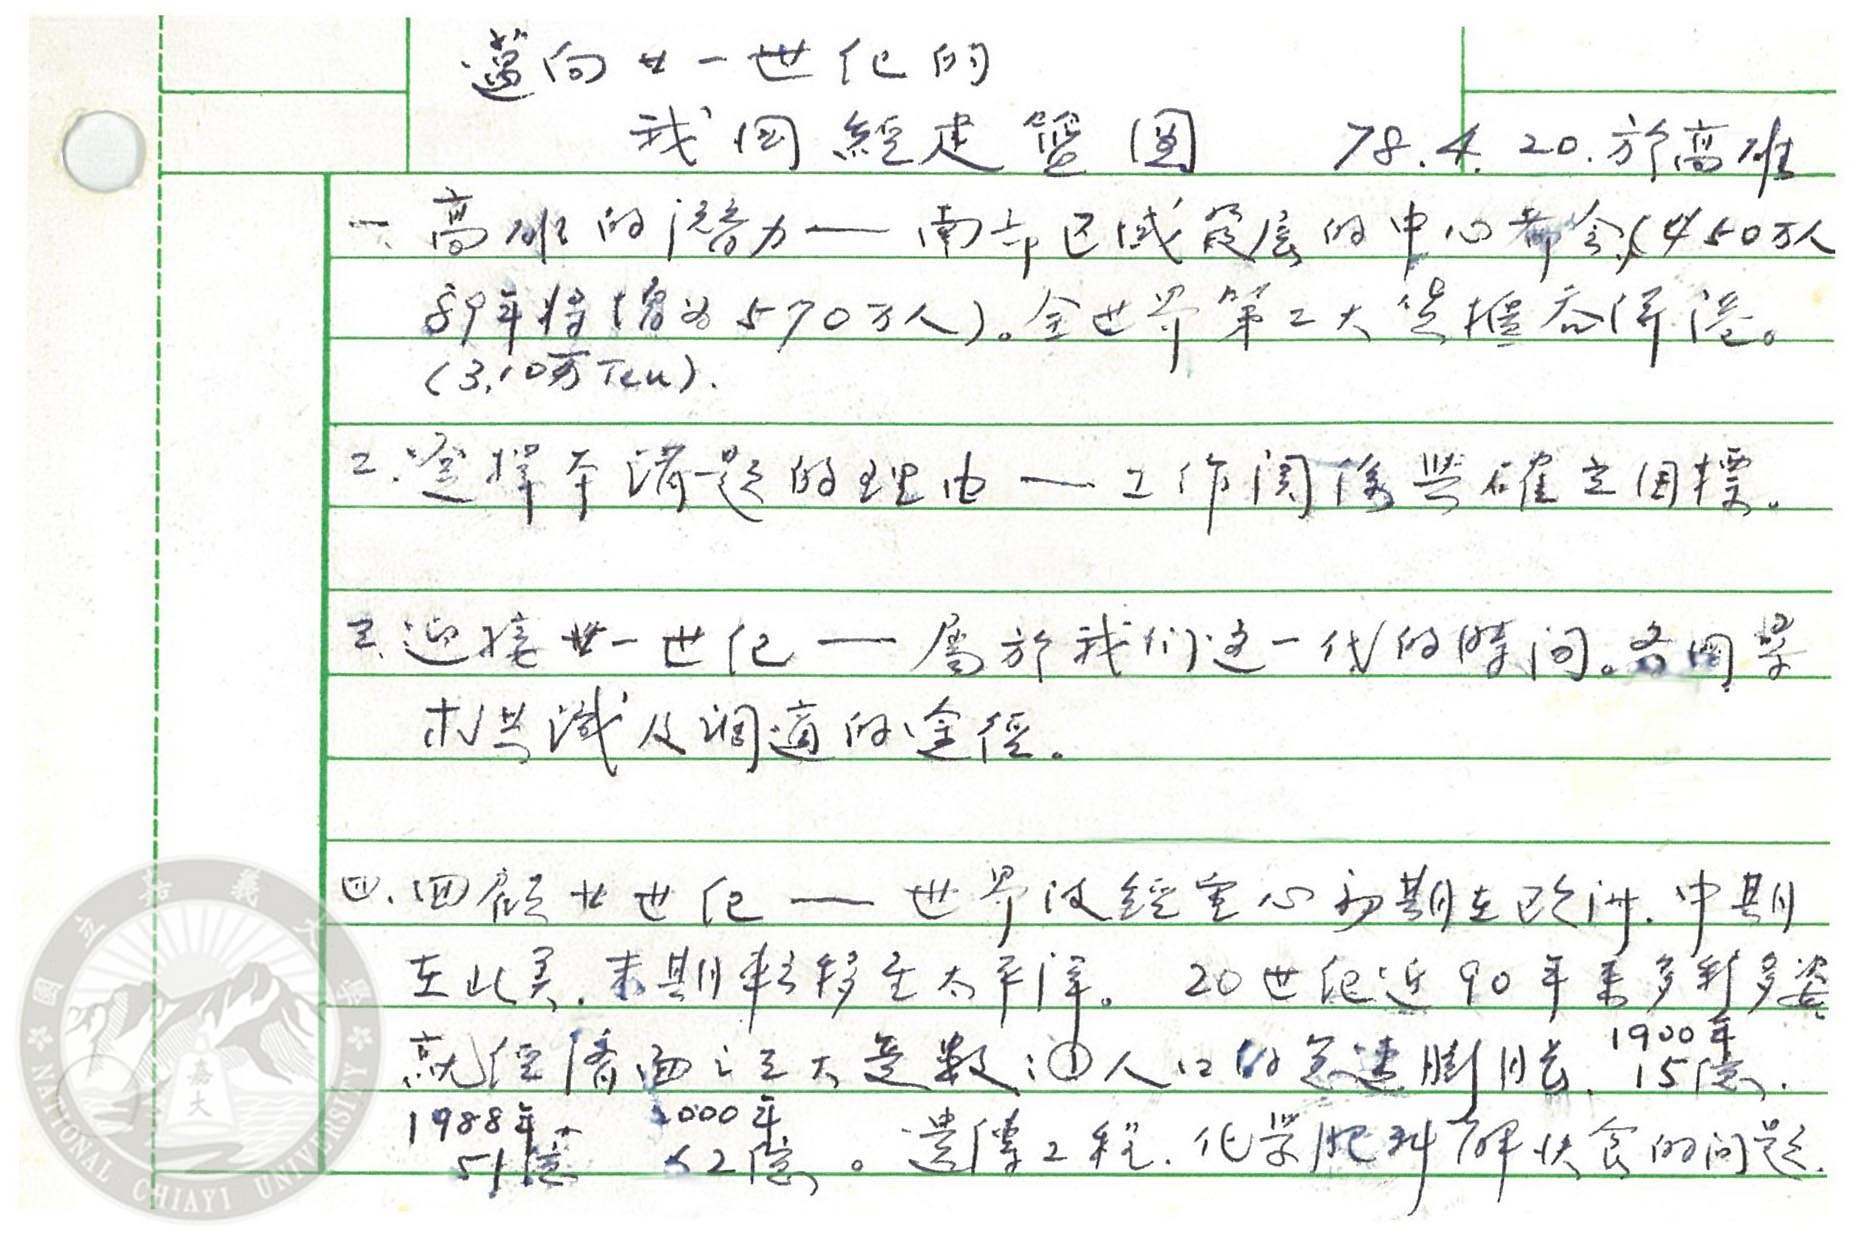 邁向廿一世紀的
我國經建藍圖 78.4.20.於高雄
一、高雄的潛力——南部区域發展的中心都会(450万人
89年将增为570万人)。全世界第二大貨櫃吞併港。
(3,10万Teu).
二、選擇本講題的理由——工作関係與確立目標。
三、迎接廿一世纪——屬於我们这一代的時间。各国學
术共識及調適的途徑。
四、回顧廿世纪——世界政經重心初期在欧洲.中期
在北美.末期転移至太平洋。20世纪近90年来多彩多姿
就经濟面之三大是數:①人口的急速膨脹、1900年15億.
1988年51億 2000年62億。遺傳工程.化学肥料解决食的问题.
國立嘉義大學
NATIONAL CHIAYI UNIVERSITY
嘉大